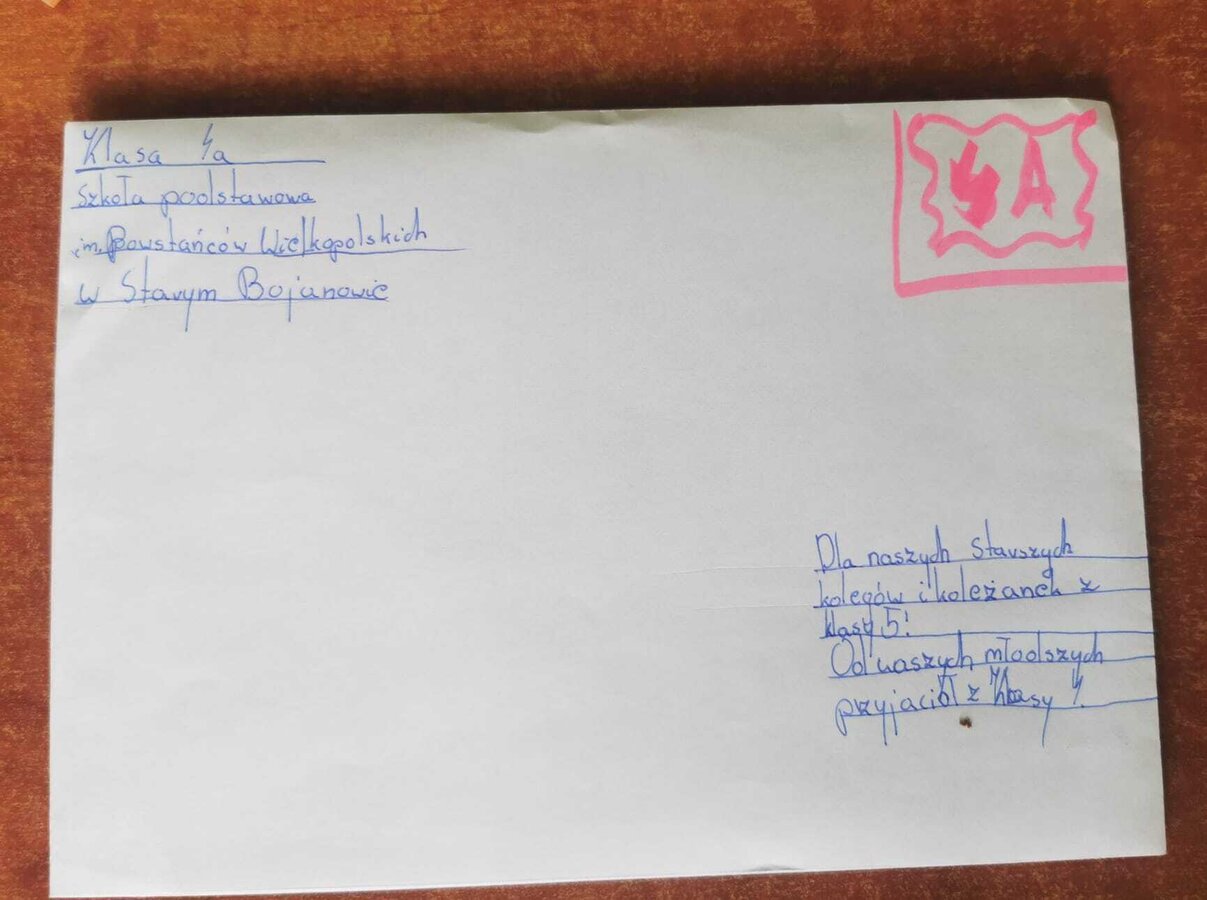 Klasa 4a
Szkoła podstawowa
im. Powstańców Wielkopolskich
w Starym Bojanowie
4A
Dla naszych starszych
kolegów i koleżanek z
klasy 5!
Od waszych młodszych
przyjaciół z klasy 4.